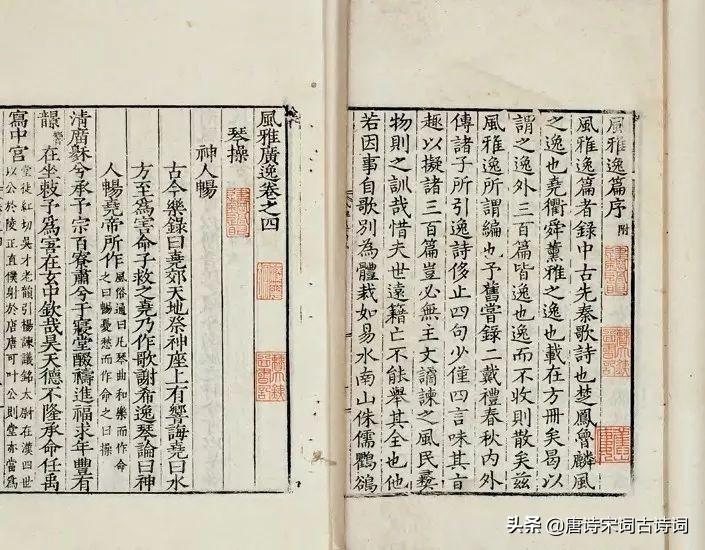 風雅逸篇序 附
風雅逸篇者錄中古先秦歌詩也楚鳳魯麟風
之逸也堯衢舜薰雅之逸也載在方冊矣曷以
謂之逸外三百篇皆逸也逸而不收則散矣茲
風雅逸所謂編也予舊嘗錄二戴禮春秋內外
傳諸子所引逸詩侈止四句少僅四言味其言
趣以擬諸三百篇豈必無主文譎諫之風民彝
物則之訓哉惜夫世遠籍亡不能舉其全也他
若因事自歌別為體裁如易水南山侏儒鸜鵒
風雅廣逸卷之四
琴操
神人暢
古今樂錄曰堯郊天地祭神座上有響誨堯曰水
方至爲害命子救之堯乃作歌謝希逸琴論曰神
人暢堯帝所作 風俗通曰凡琴曲和樂而作命
之曰暢憂愁而作命之曰操
清廟穆兮承予宗百寮肅兮于寢堂醊禱進福求年豐有
韻 響 在坐敕予爲害在玄中欽哉昊天德不隆承命任禹
寫中宮 堂徒紅切吳才老韻引楊諫議銘太尉在漢四世
以公於陵正直僕射於唐唐可叶公則堂亦當爲
头条 @唐诗宋词古诗词